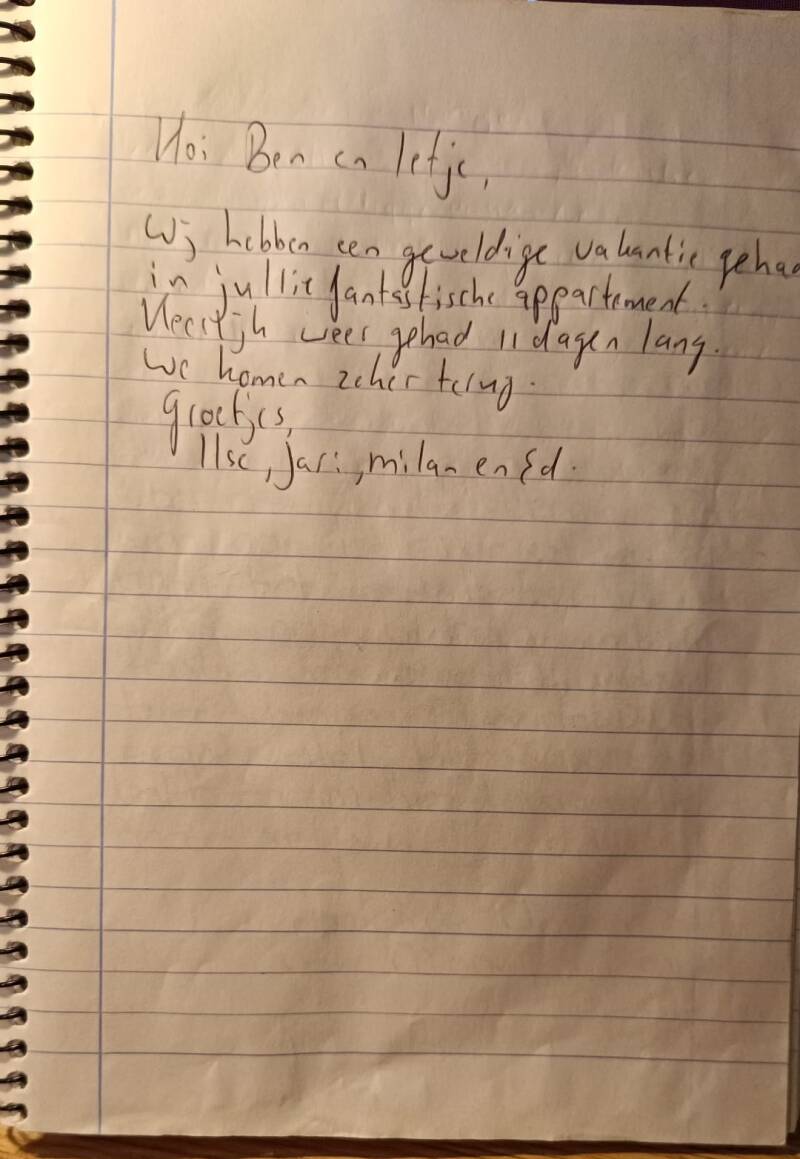 Hoi Ben en Ietje,
Wij hebben een geweldige vakantie gehad
in jullie fantastische appartement.
Heerlijk weer gehad 11 dagen lang.
We komen zeker terug.
Groetjes,
Ilse, Jari, Milan en Ed.